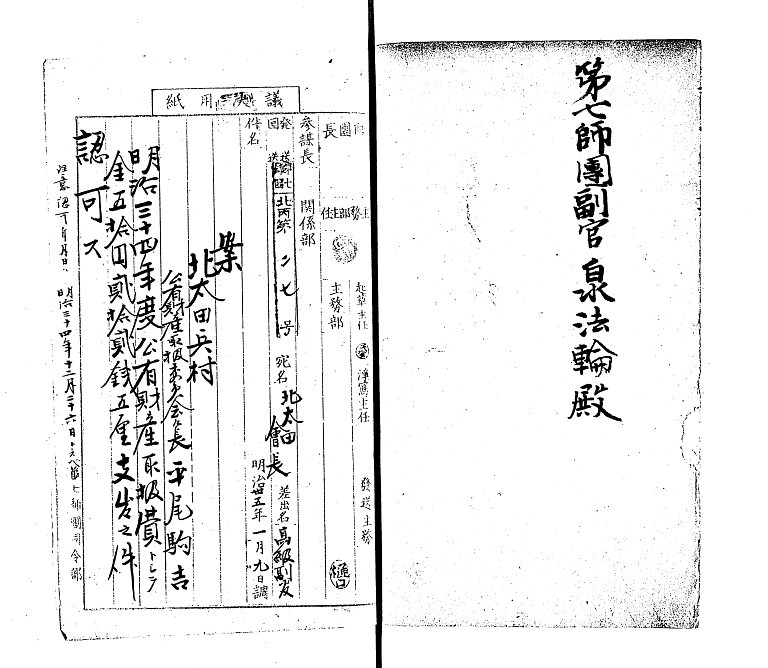 第七師團副官泉法輪殿
議決用紙
師團長
參謀長
主務部主任
關係部
主務部
起草主任
淨寫主任
發送主務
樋口
發回
送達
北丙第二七号
宛名 北太田會長
差出名 高級副官
件名
明治卅五年一月九日調
案
北太田兵村
公有財産取扱委員会長 平尾駒吉
明治三十四年度公有財産取扱費トシテ
金五拾円貳拾貳銭五厘支出之件
認可ス
注意 認可年月日、明治三十四年十二月二十六日トスヘシ
第七師團司令部